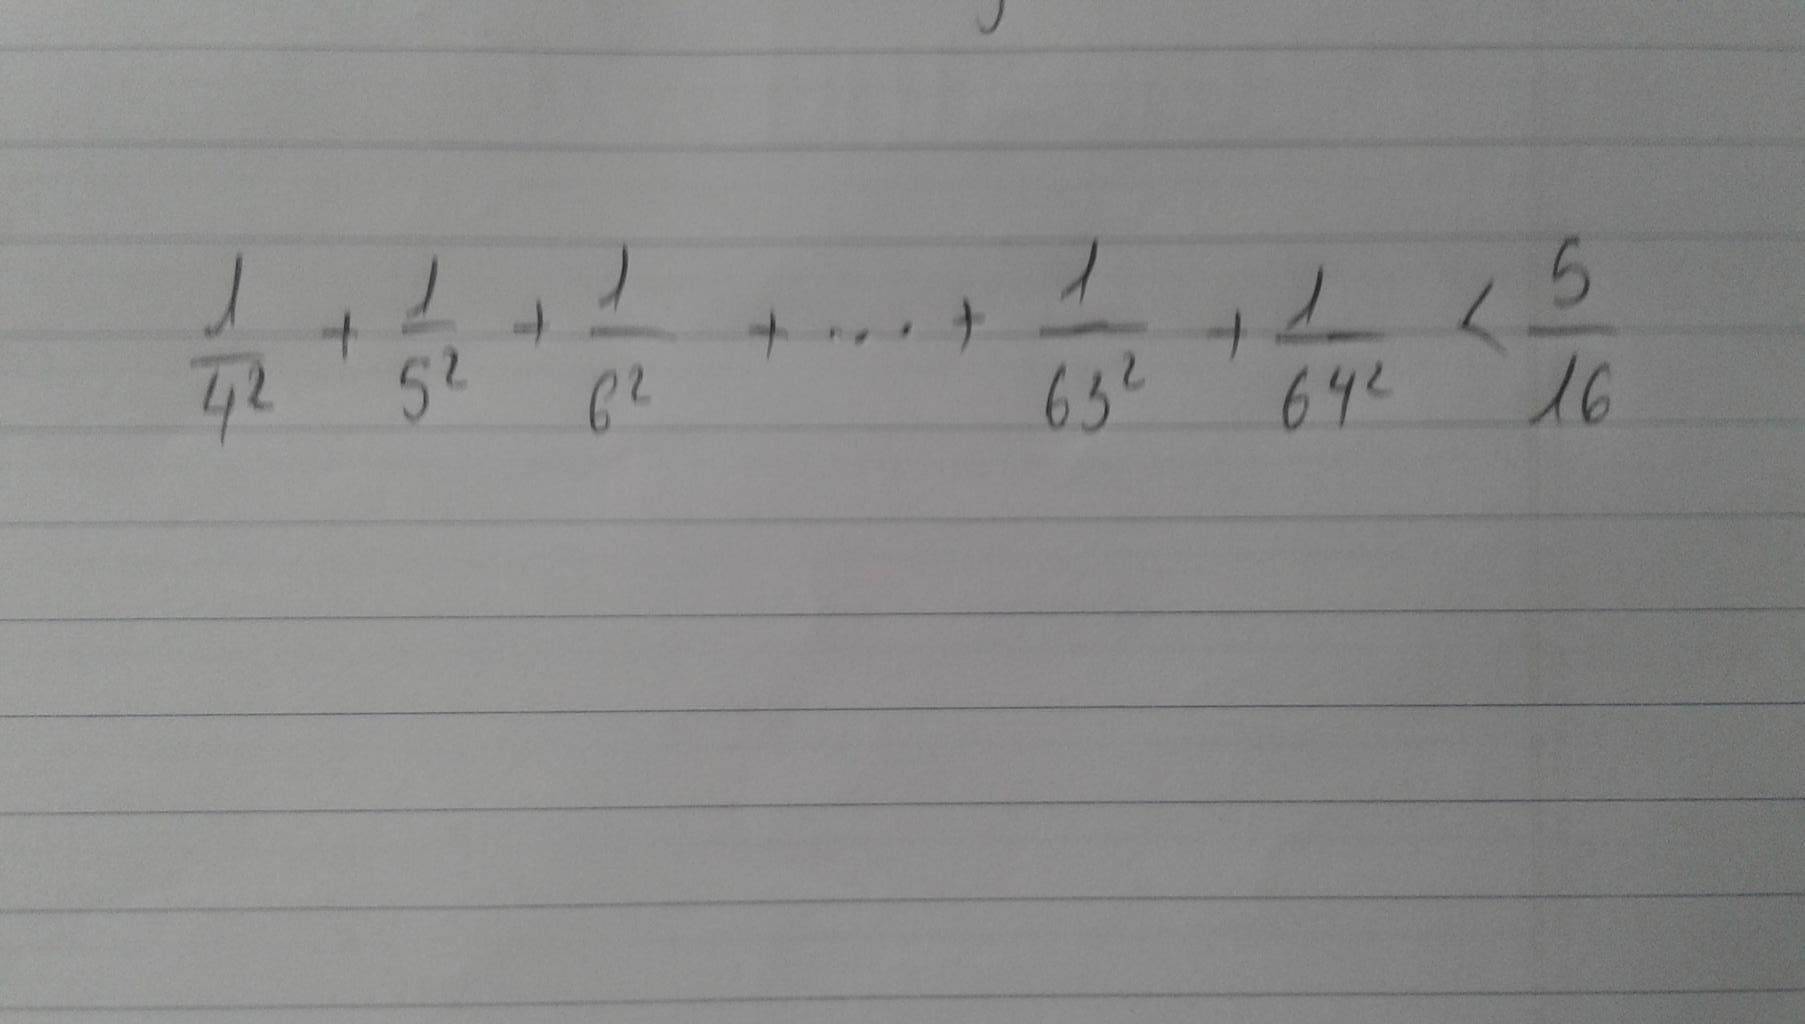 1/4² + 1/5² + 1/6² + ... + 1/63² + 1/64² < 5/16